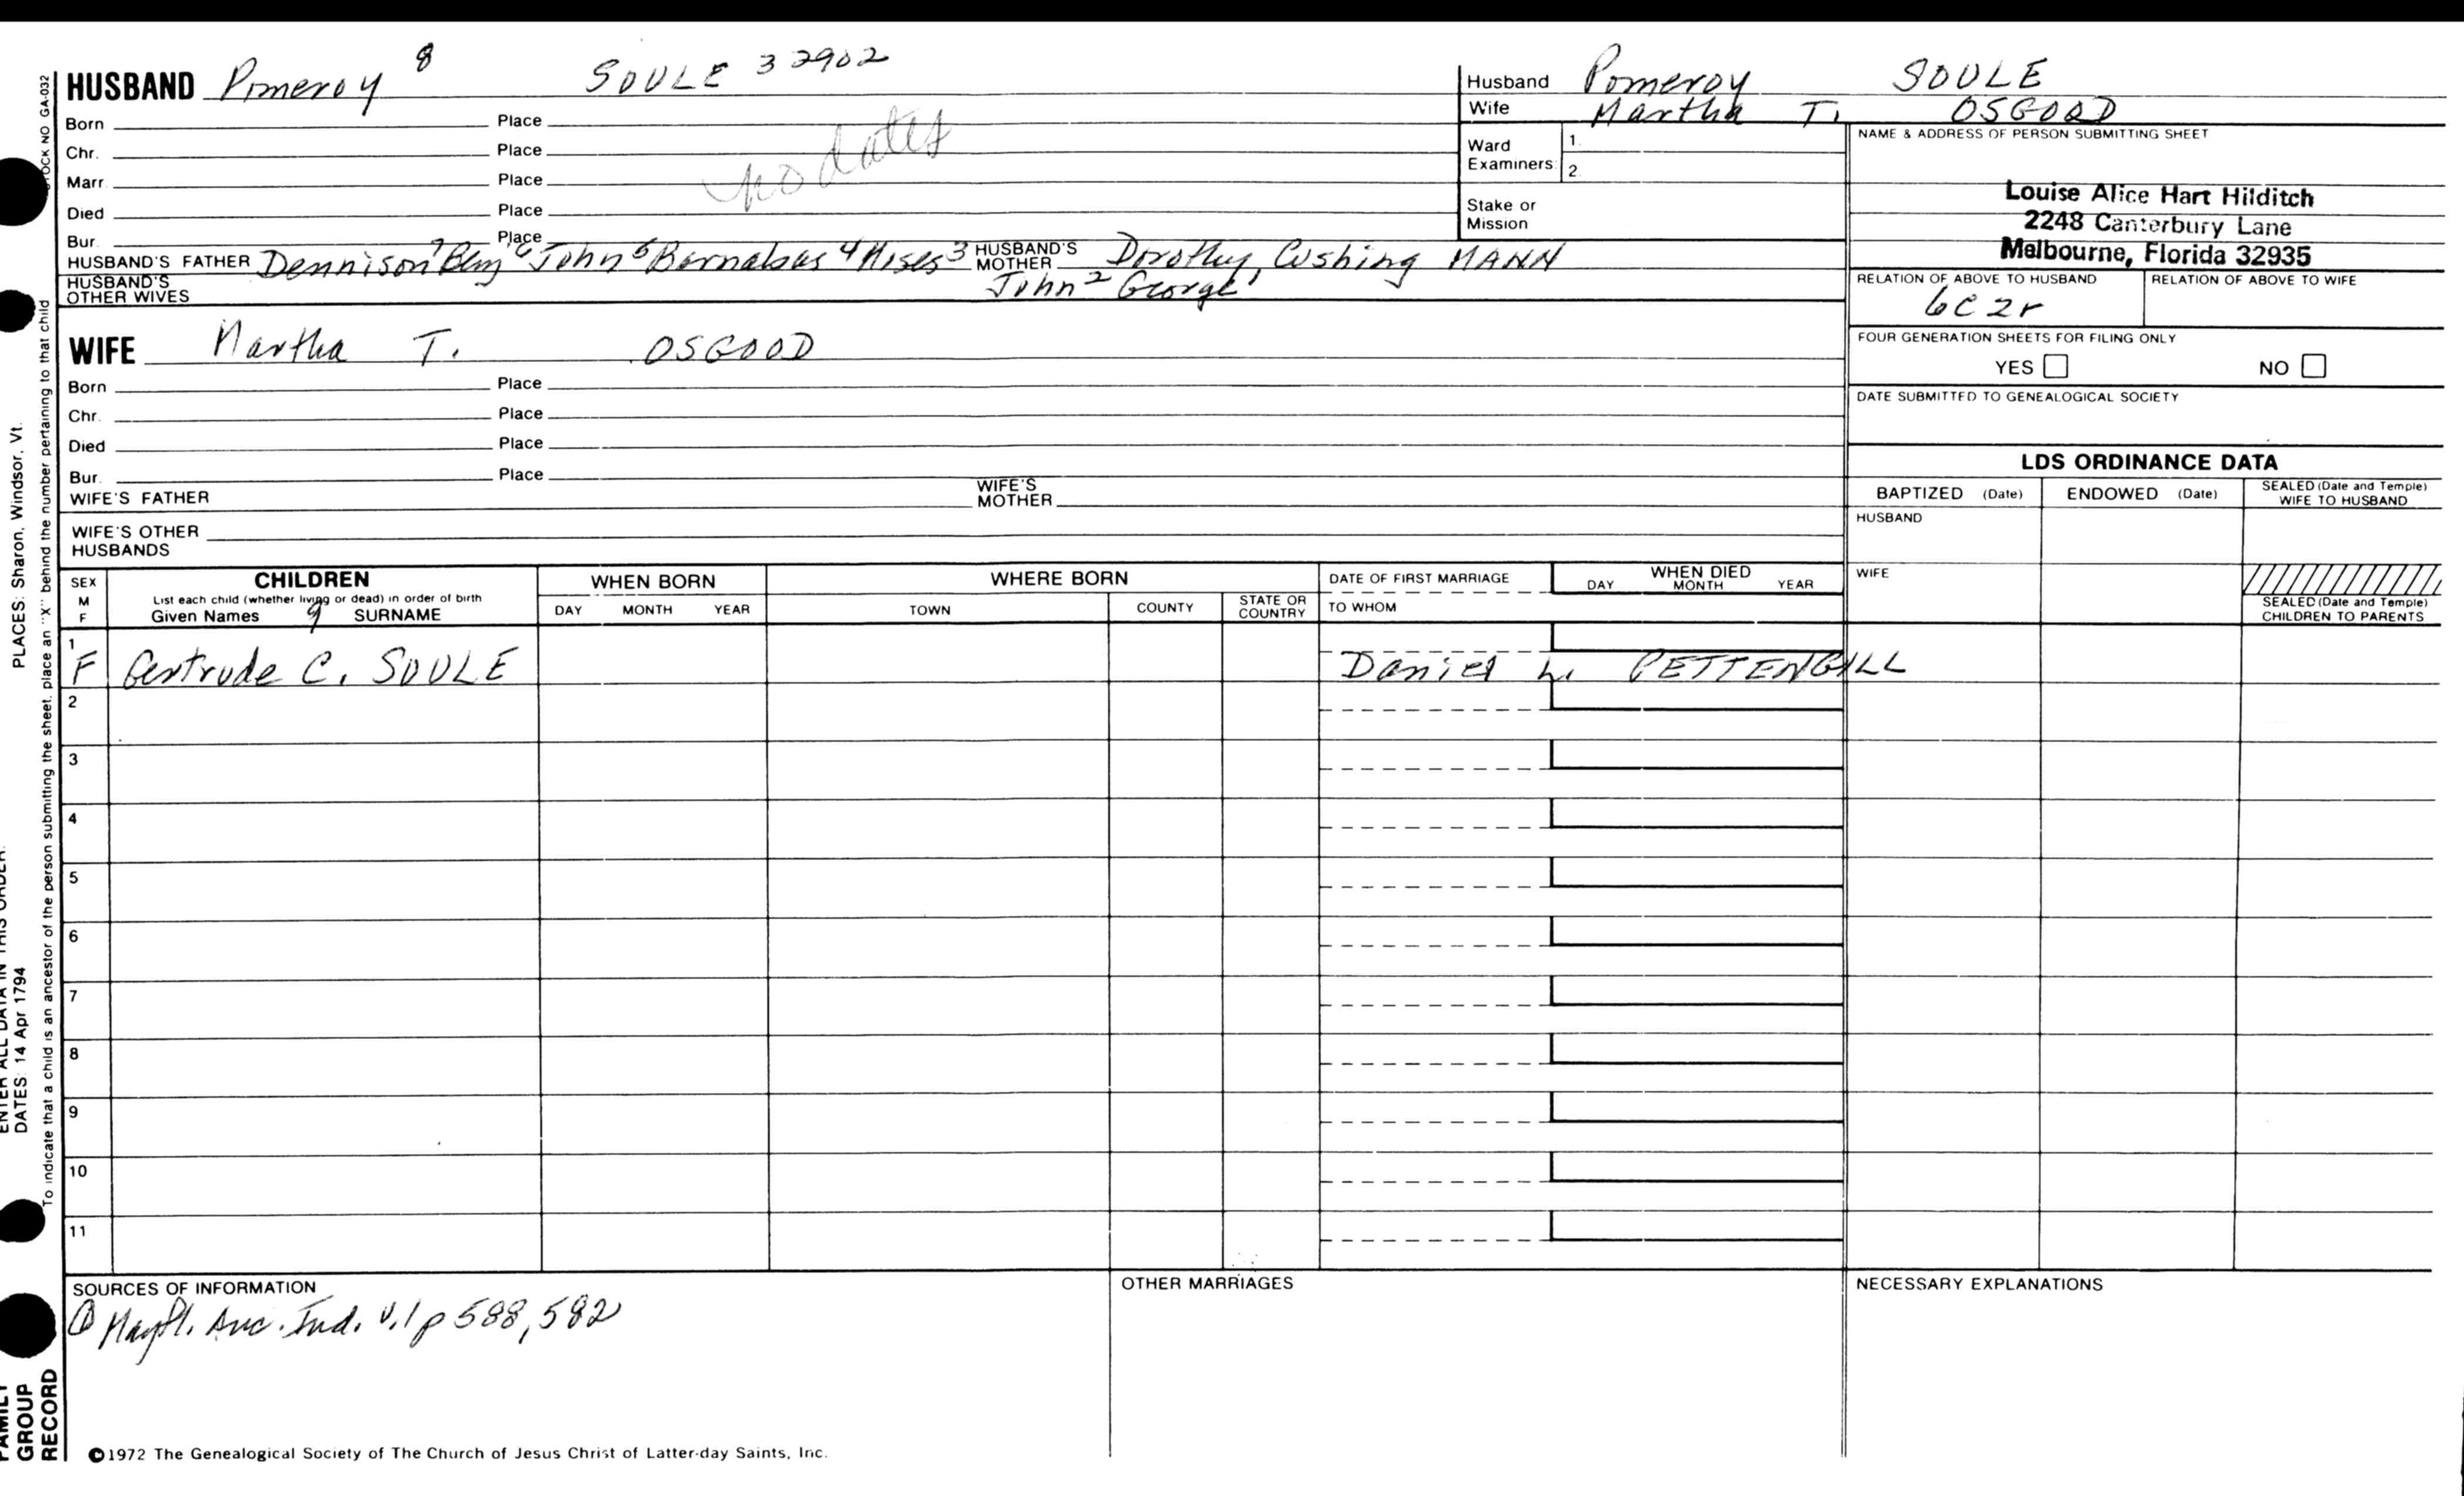 HUSBAND Pomeroy 8 SOULE 32902
Born Place
Chr. Place
Marr. Place
Died Place
Bur. Place
no dates
HUSBAND'S FATHER Dennison 7 Benj 6 John 5 Barnabas 4 Moses 3 HUSBAND'S MOTHER Dorothy Cushing MANN
HUSBAND'S OTHER WIVES John 2 George 1
WIFE Martha T. OSGOOD
Born Place
Chr. Place
Died Place
Bur. Place
WIFE'S FATHER WIFE'S MOTHER
WIFE'S OTHER HUSBANDS
Husband Pomeroy SOULE
Wife Martha T. OSGOOD
Ward Examiners 1. 2.
Stake or Mission
NAME & ADDRESS OF PERSON SUBMITTING SHEET
Louise Alice Hart Hilditch
2248 Canterbury Lane
Melbourne, Florida 32935
RELATION OF ABOVE TO HUSBAND RELATION OF ABOVE TO WIFE
6C2r
FOUR GENERATION SHEETS FOR FILING ONLY
YES NO
DATE SUBMITTED TO GENEALOGICAL SOCIETY
LDS ORDINANCE DATA
BAPTIZED (Date) ENDOWED (Date) SEALED (Date and Temple) WIFE TO HUSBAND
HUSBAND
WIFE
SEALED (Date and Temple) CHILDREN TO PARENTS
SEX M F
CHILDREN
List each child (whether living or dead) in order of birth
Given Names 9 SURNAME
WHEN BORN
DAY MONTH YEAR
WHERE BORN
TOWN COUNTY STATE OR COUNTRY
DATE OF FIRST MARRIAGE
TO WHOM
WHEN DIED
DAY MONTH YEAR
1
F Gertrude C. SOULE Daniel L. PETTENGILL
2
3
4
5
6
7
8
9
10
11
SOURCES OF INFORMATION
① Mayfl. Anc. Ind. v.1 p 588, 582
OTHER MARRIAGES
NECESSARY EXPLANATIONS
©1972 The Genealogical Society of The Church of Jesus Christ of Latter-day Saints, Inc.
STOCK NO GA-032
To indicate that a child is an ancestor of the person submitting the sheet, place an "X" behind the number pertaining to that child
PLACES: Sharon, Windsor, Vt.
ENTER ALL DATA IN THIS ORDER:
DATES: 14 Apr 1794
FAMILY
GROUP
RECORD